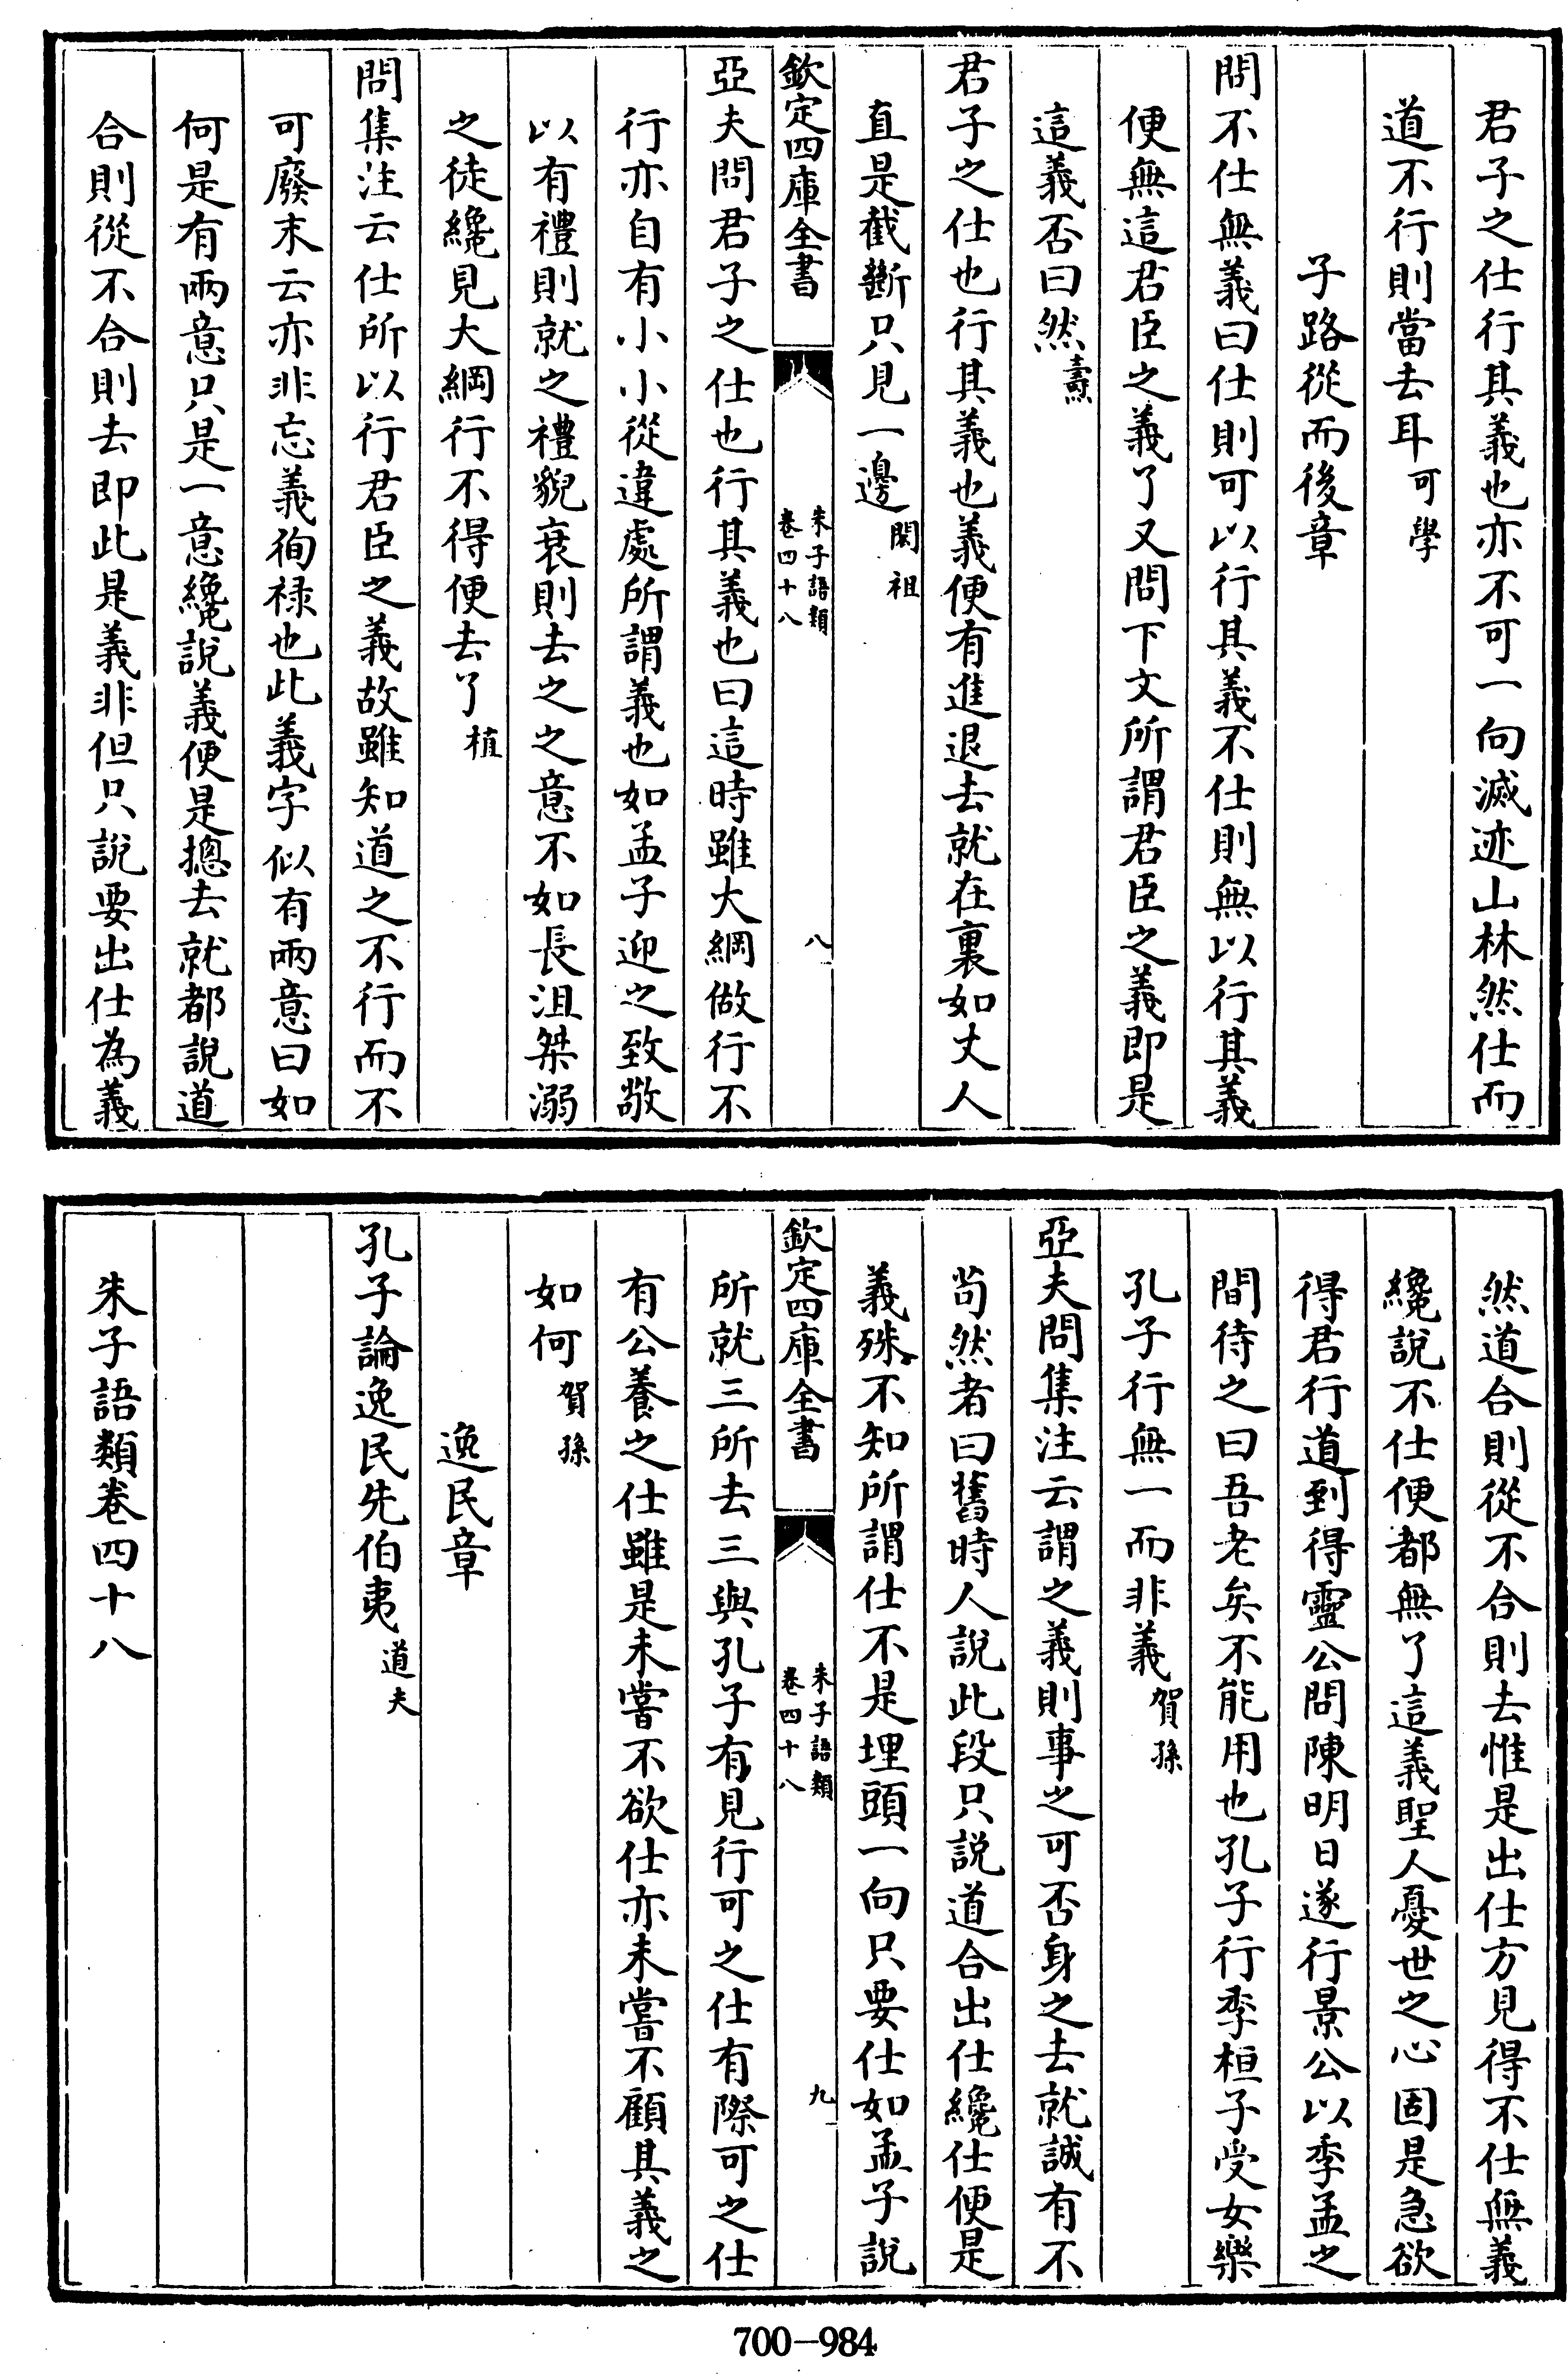 君子之仕行其義也亦不可一向滅迹山林然仕而
道不行則當去耳可學
子路從而後章
問不仕無義曰仕則可以行其義不仕則無以行其義
便無這君臣之義了又問下文所謂君臣之義即是
這義否曰然燾
君子之仕也行其義也義便有進退去就在裏如丈人
直是截斷只見一邊閎祖
欽定四庫全書
朱子語類
卷四十八
八
亞夫問君子之仕也行其義也曰這時雖大綱做行不
行亦自有小小從違處所謂義也如孟子迎之致敬
以有禮則就之禮貌衰則去之之意不如長沮桀溺
之徒纔見大綱行不得便去了植
問集注云仕所以行君臣之義故雖知道之不行而不
可廢末云亦非忘義徇禄也此義字似有兩意曰如
何是有兩意只是一意纔說義便是摠去就都說道
合則從不合則去即此是義非但只說要出仕為義
然道合則從不合則去惟是出仕方見得不仕無義
纔說不仕便都無了這義聖人憂世之心固是急欲
得君行道到得靈公問陳明日遂行景公以季孟之
間待之曰吾老矣不能用也孔子行季桓子受女樂
孔子行無一而非義賀孫
亞夫問集注云謂之義則事之可否身之去就誠有不
苟然者曰舊時人說此段只說道合出仕纔仕便是
義殊不知所謂仕不是埋頭一向只要仕如孟子說
欽定四庫全書
朱子語類
卷四十八
九
所就三所去三與孔子有見行可之仕有際可之仕
有公養之仕雖是未嘗不欲仕亦未嘗不顧其義之
如何賀孫
逸民章
孔子論逸民先伯夷道夫
朱子語類卷四十八
700-984